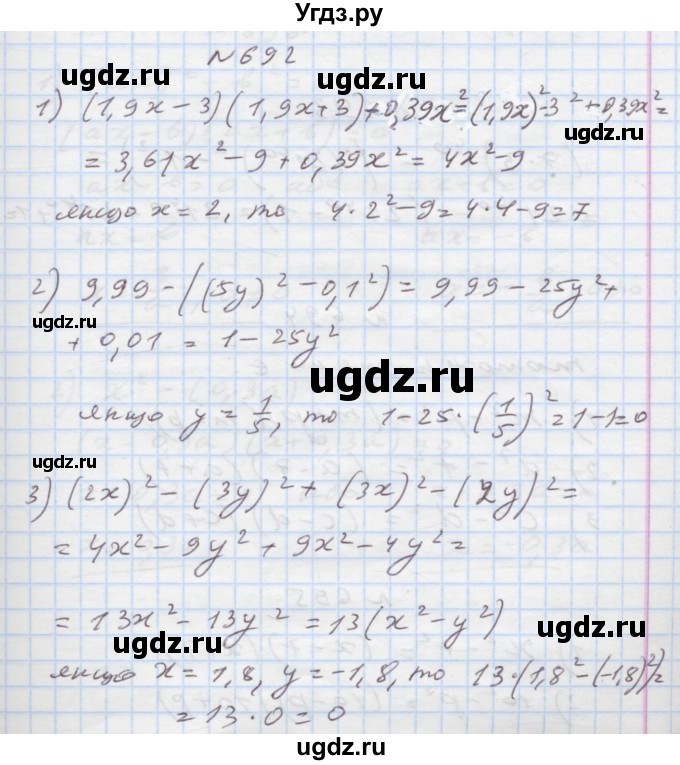 Угдз.ру
№692
ugdz.ru
ugdz.ru
1) (1,9x-3)(1,9x+3)+0,39x²=(1,9x)²-3²+0,39x²=
= 3,61x²-9+0,39x²=4x²-9
якщо x=2, то 4·2²-9=4·4-9=7
2) 9,99-((5y)²-0,1²)=9,99-25y²+
ugdz.ru
+0,01=1-25y²
ugdz.ru
якщо y=1/5, то 1-25·(1/5)²=1-1=0
3) (2x)²-(3y)²+(3x)²-(2y)²=
ugdz.ru
=4x²-9y²+9x²-4y²=
=13x²-13y²=13(x²-y²)
ugdz.ru
ugdz.ru
якщо x=1,8, y=-1,8, то 13·(1,8²-(-1,8)²)=
=13·0=0
ugdz.ru